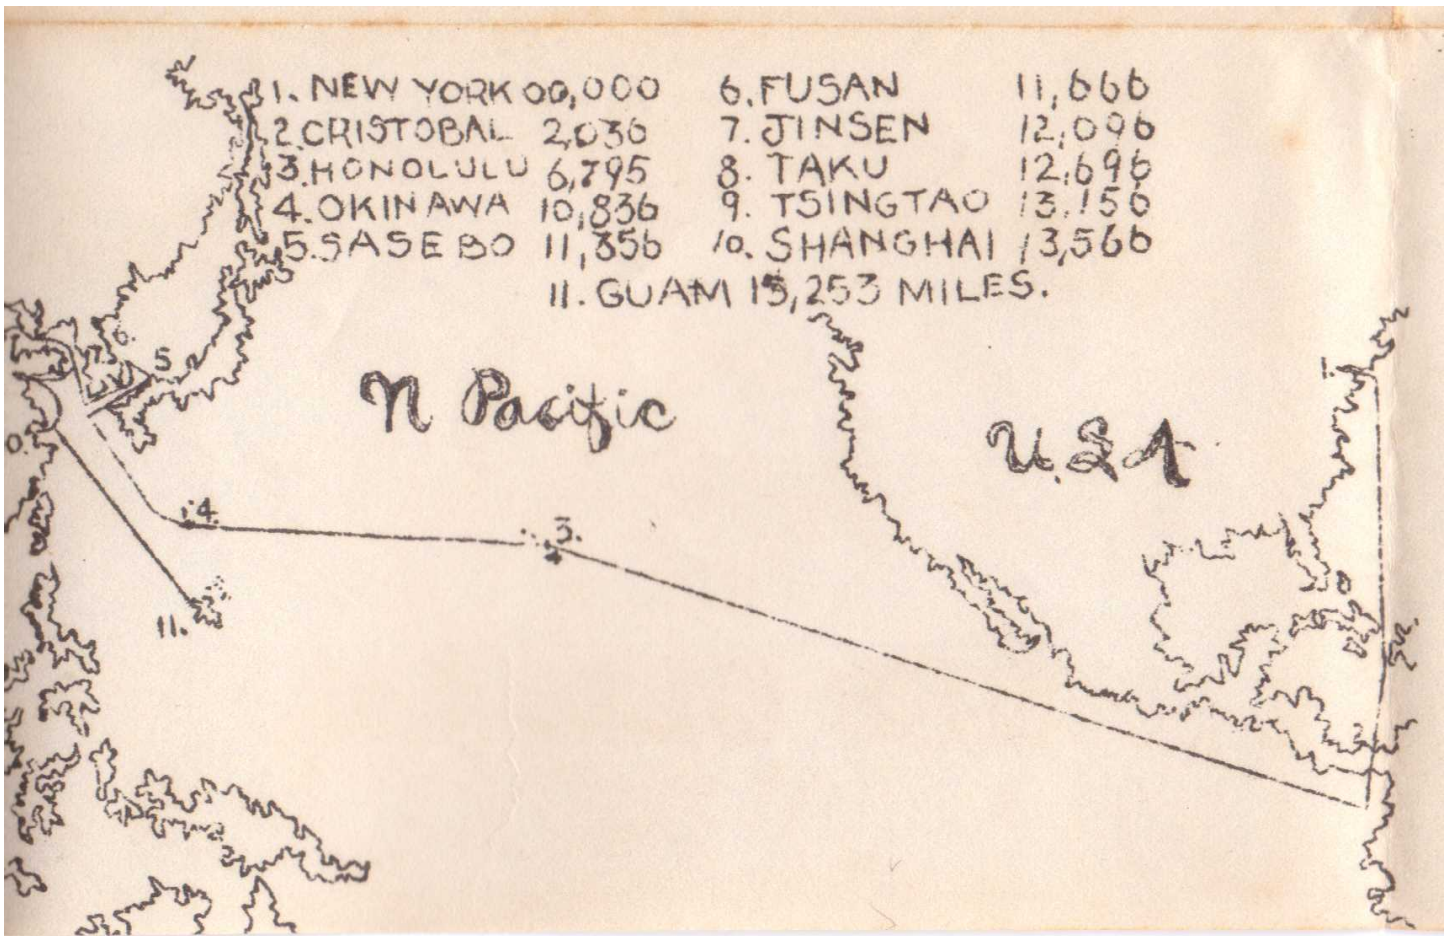 1. NEW YORK 00,000
2. CRISTOBAL 2,036
3. HONOLULU 6,795
4. OKINAWA 10,836
5. SASEBO 11,356
6. FUSAN 11,666
7. JINSEN 12,096
8. TAKU 12,696
9. TSINGTAO 13,156
10. SHANGHAI 13,566
11. GUAM 15,253 MILES.
N Pacific
U.S.A
1
6.
7
5
0.
4.
3.
11.
2